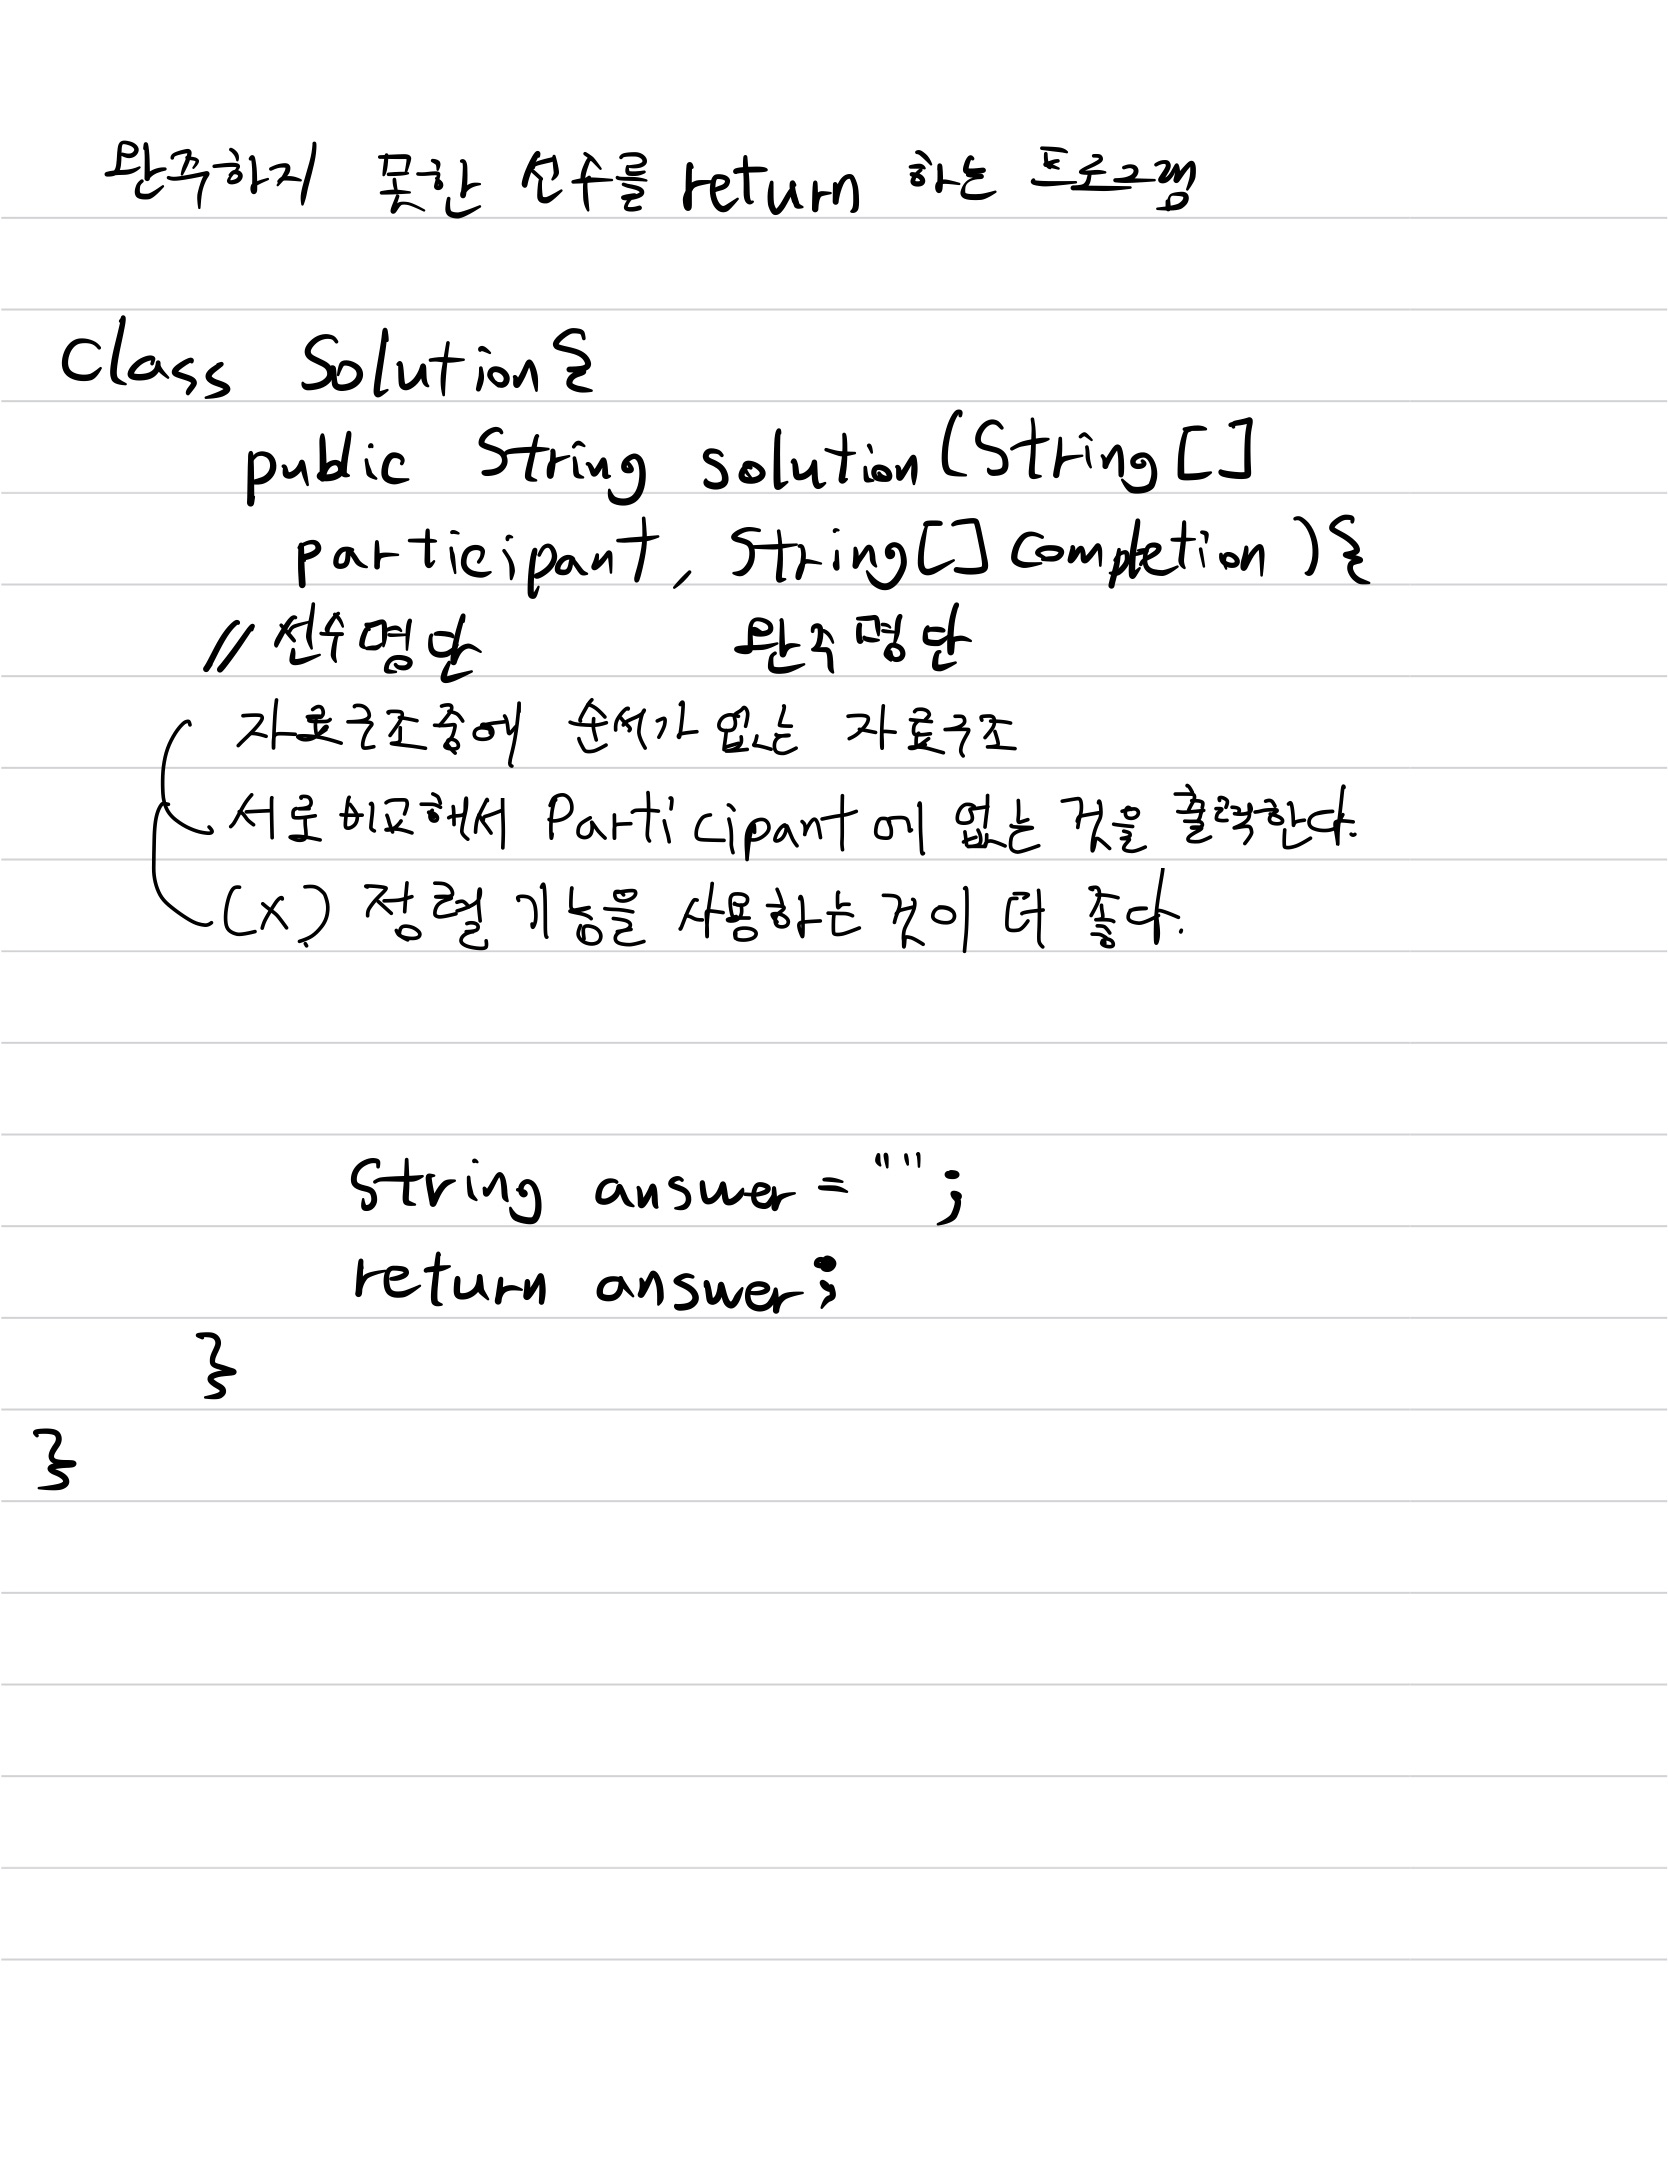 완주하지 못한 선수를 return 하는 프로그램
class Solution{
public String solution(String[]
participant, String[] completion){
// 선수명단 완주명단
자료구조중에 순서가 없는 자료구조
서로 비교해서 Participant에 없는 것을 출력한다.
(X) 정렬 기능을 사용하는 것이 더 좋다.
String answer = "";
return answer;
}
}